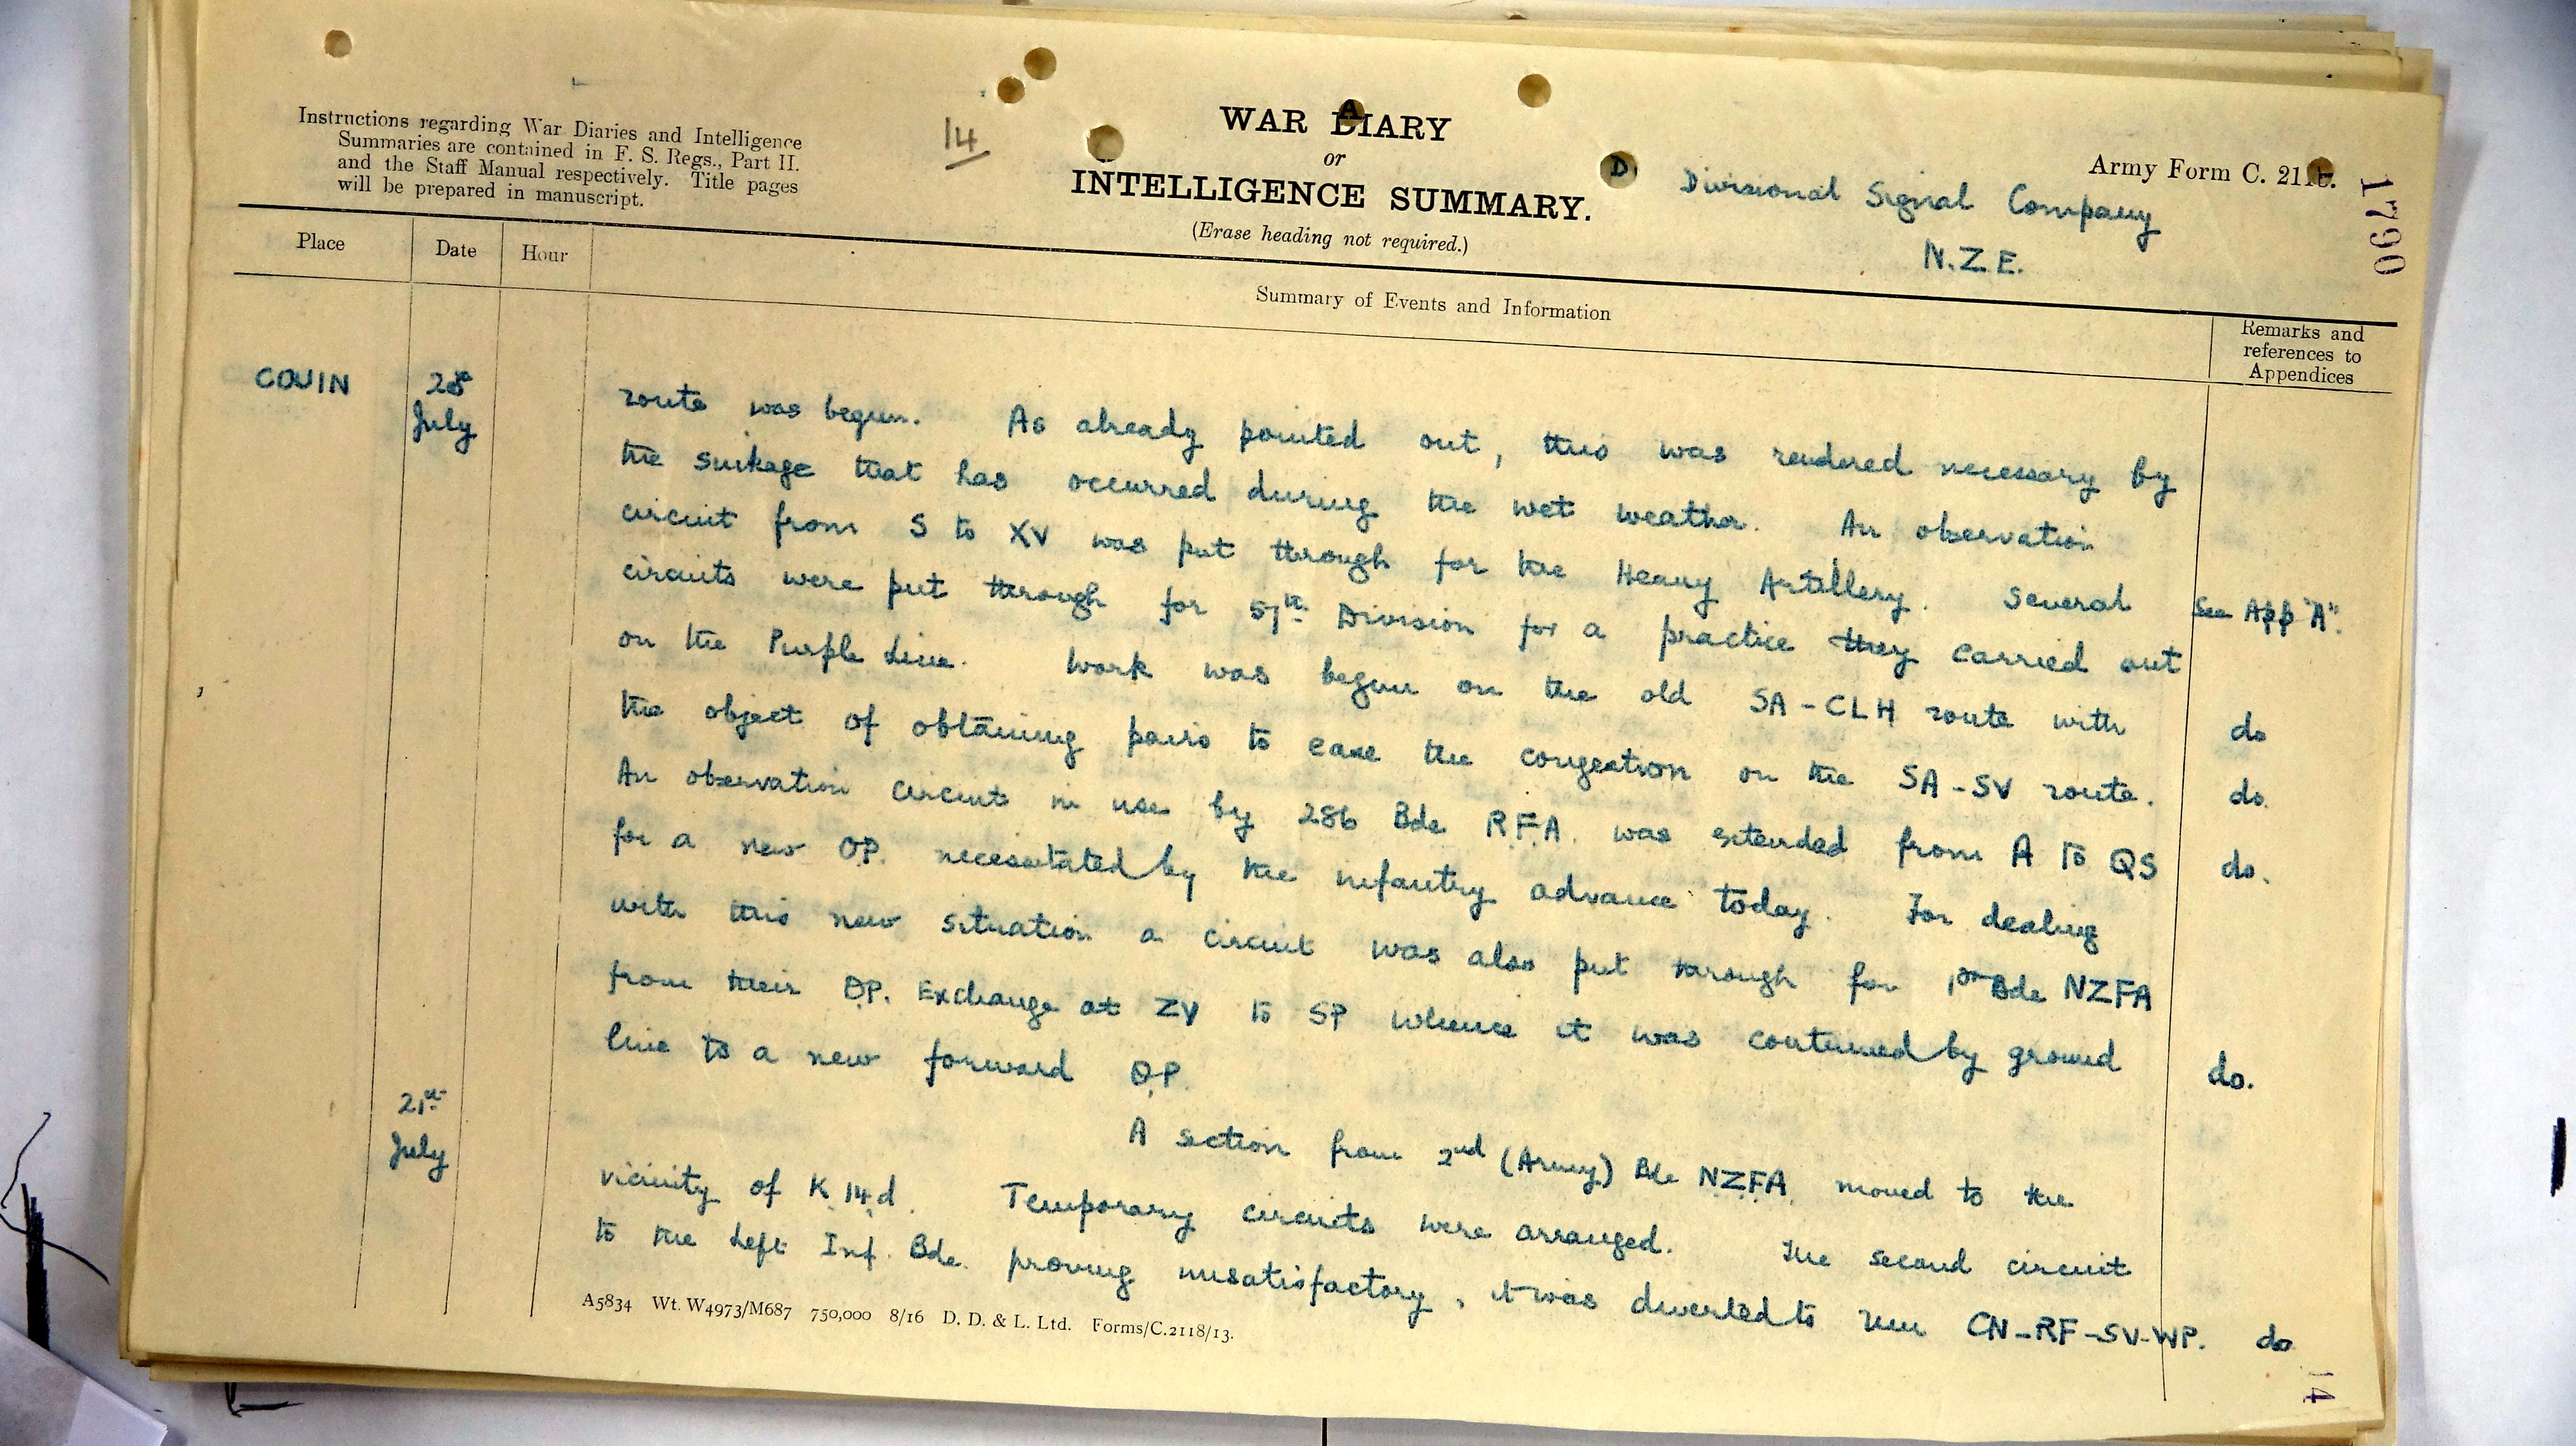 Instructions regarding War Diaries and Intelligence
Summaries are contained in F. S. Regs., Part II.
and the Staff Manual respectively. Title pages
will be prepared in manuscript.
14
WAR DIARY
or
INTELLIGENCE SUMMARY.
(Erase heading not required.)
Army Form C. 2118.
Divisional Signal Company
N.Z.E.
1790
Place Date Hour
Summary of Events and Information
Remarks and
references to
Appendices
COUIN
July
route was begun. As already pointed out, this was rendered necessary by
the sinkage that has occurred during the wet weather. An observation
circuit from S to XV was put through for the Heavy Artillery. Several See App "A".
circuits were put through for 57th Division for a practice they carried out
on the Purple Line. Work was begun on the old SA-CLH route with do
the object of obtaining pairs to ease the congestion on the SA-SV route. do.
An observation circuit in use by 286 Bde R.F.A. was extended from A to QS do.
for a new O.P. necessitated by the infantry advance today. For dealing
with this new situation a circuit was also put through for 1st Bde NZFA
from their O.P. Exchange at ZV to SP whence it was continued by ground
line to a new forward O.P. do.
21st
July
A section from 2nd (Army) Bde N.Z.F.A. moved to the
vicinity of K.14.d. Temporary circuits were arranged. The second circuit
to the Left Inf. Bde. proving unsatisfactory, it was diverted to run CN-RF-SV-WP. do
A5834 Wt. W4973/M687 750,000 8/16 D. D. & L. Ltd. Forms/C.2118/13.
14